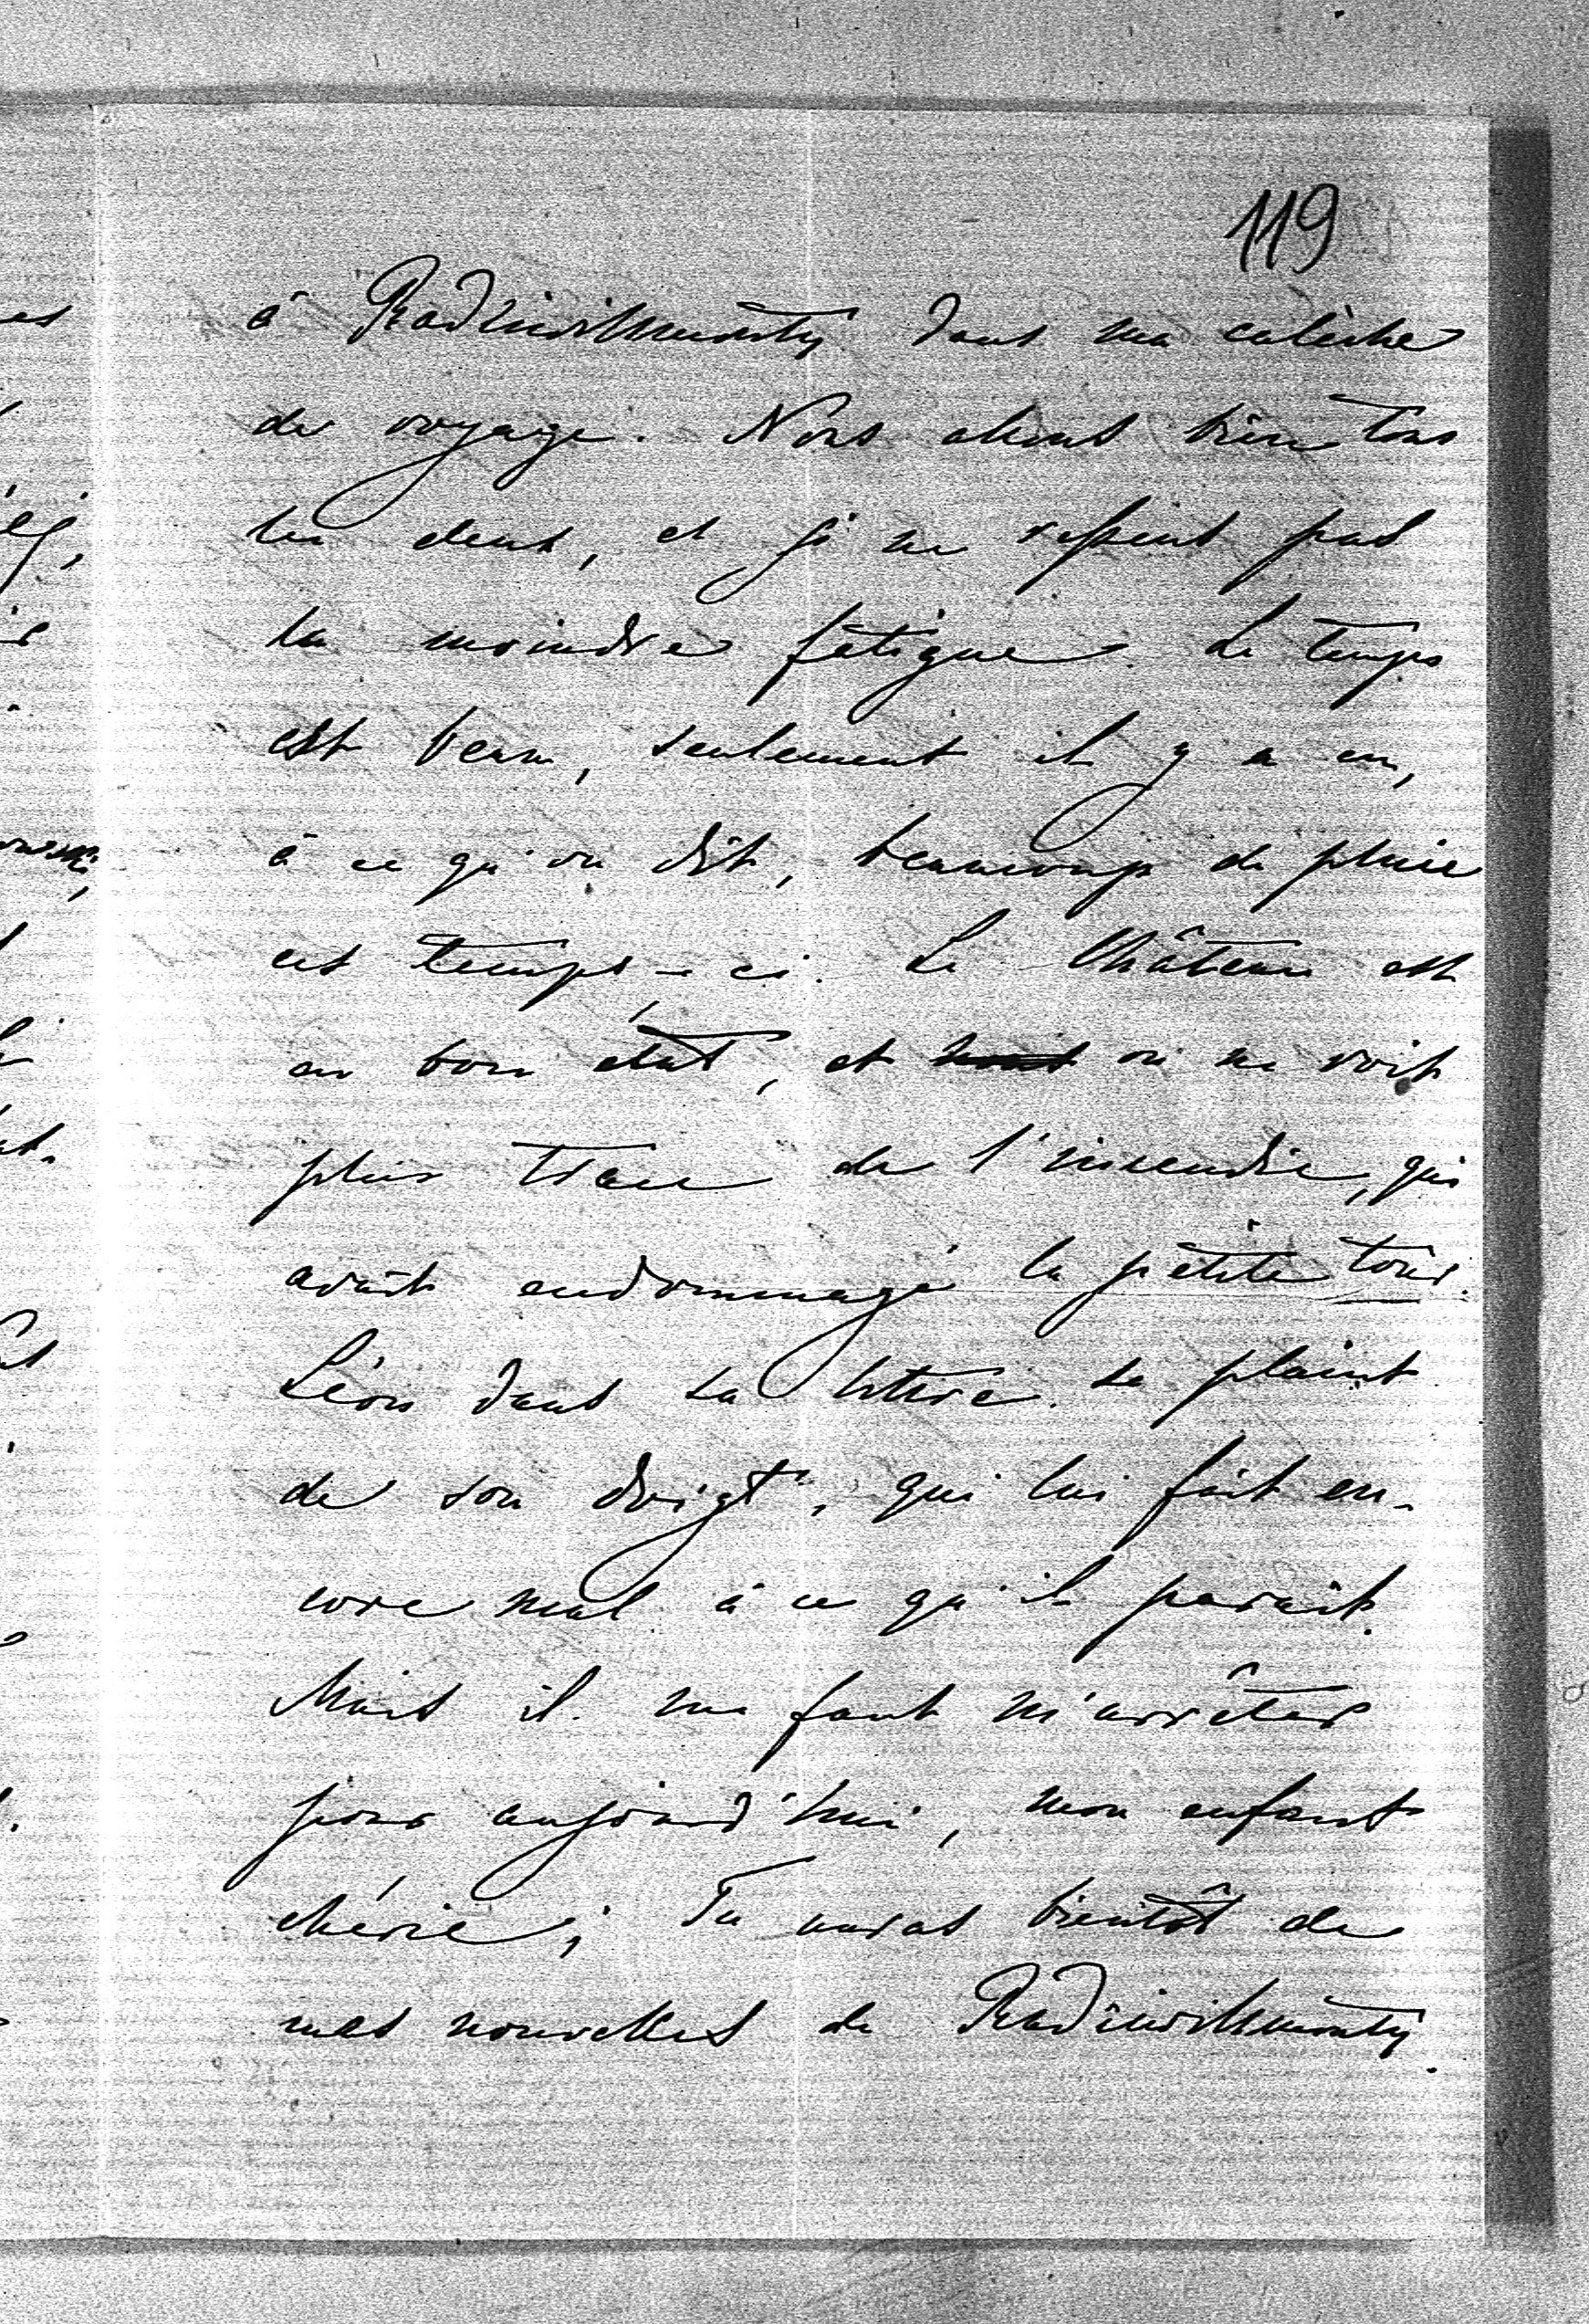 119
à Radziwillmonty dans ma calèche
de voyage. Nous allons bien tous
les deux, et je ne ressens pas
la moindre fatigue. Le temps
est beau, seulement il y a eu,
à ce qu'on dit, beaucoup de pluie
ces temps-ci. Le Château est
en bon état, et on ne voit
plus trace de l'incendie, qui
avait endommagé la petite tour.
Léon dans sa lettre se plaint
de son doigt, qui lui fait en-
core mal à ce qu'il paraît.
Mais il me faut m'arrêter
pour aujourd'hui, mon enfant
chérie; Tu auras bientôt de
mes nouvelles de Radziwillmonty.